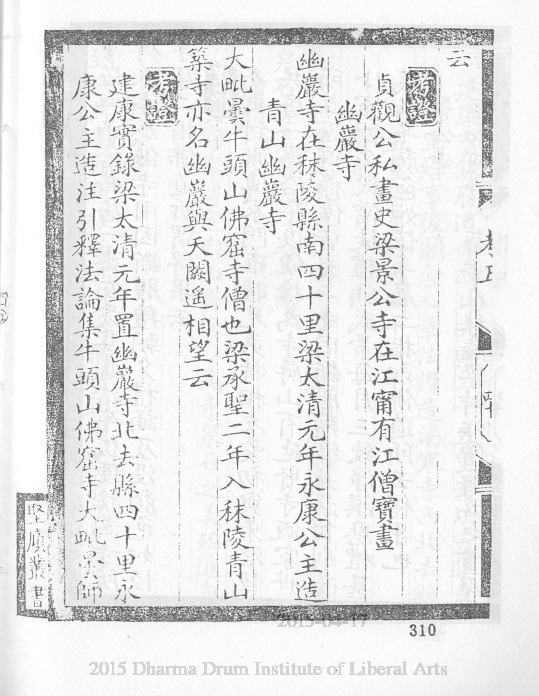 云
考證
貞觀公私畫史梁景公寺在江甯有江僧寶畫
幽巖寺
幽巖寺在秣陵縣南四十里梁太清元年永康公主造
青山幽巖寺
大毗曇牛頭山佛窟寺僧也梁承聖二年入秣陵青山
築寺亦名幽巖與天闕遥相望云
考證
建康實錄梁太清元年置幽巖寺北去縣四十里永
康公主造注引釋法論集牛頭山佛窟寺大毗曇師
310
2015 Dharma Drum Institute of Liberal Arts